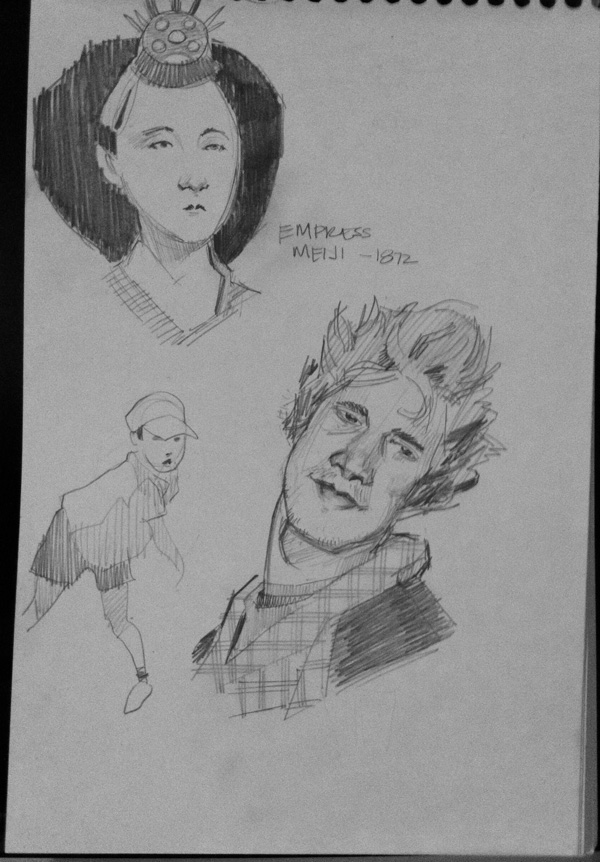 EMPRESS
MEIJI - 1872